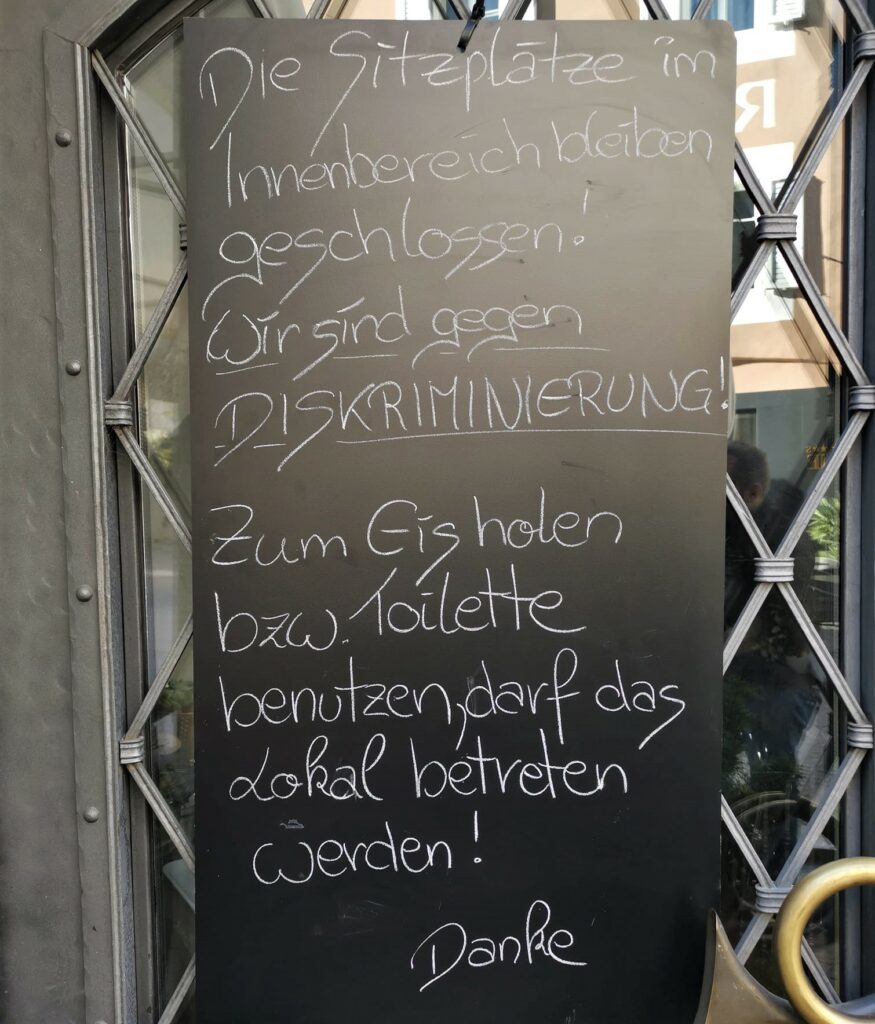 Die Sitzplätze im
Innenbereich bleiben
geschlossen!
Wir sind gegen
DISKRIMINIERUNG!
Zum Eis holen
bzw. Toilette
benutzen, darf das
Lokal betreten
werden!
Danke